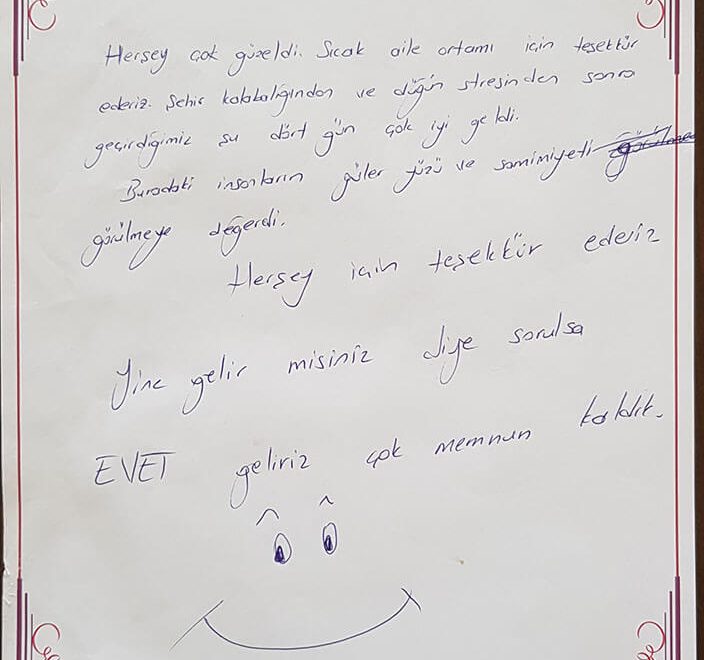 Herşey çok güzeldi. Sıcak aile ortamı için teşekkür
ederiz. Şehir kalabalığından ve düğün stresinden sonra
geçirdiğimiz şu dört gün çok iyi geldi.
Buradaki insanların güler yüzü ve samimiyeti görülmeye
görülmeye değerdi.
Herşey için teşekkür ederiz
Yine gelir misiniz diye sorulsa
EVET geliriz çok memnun kaldık.